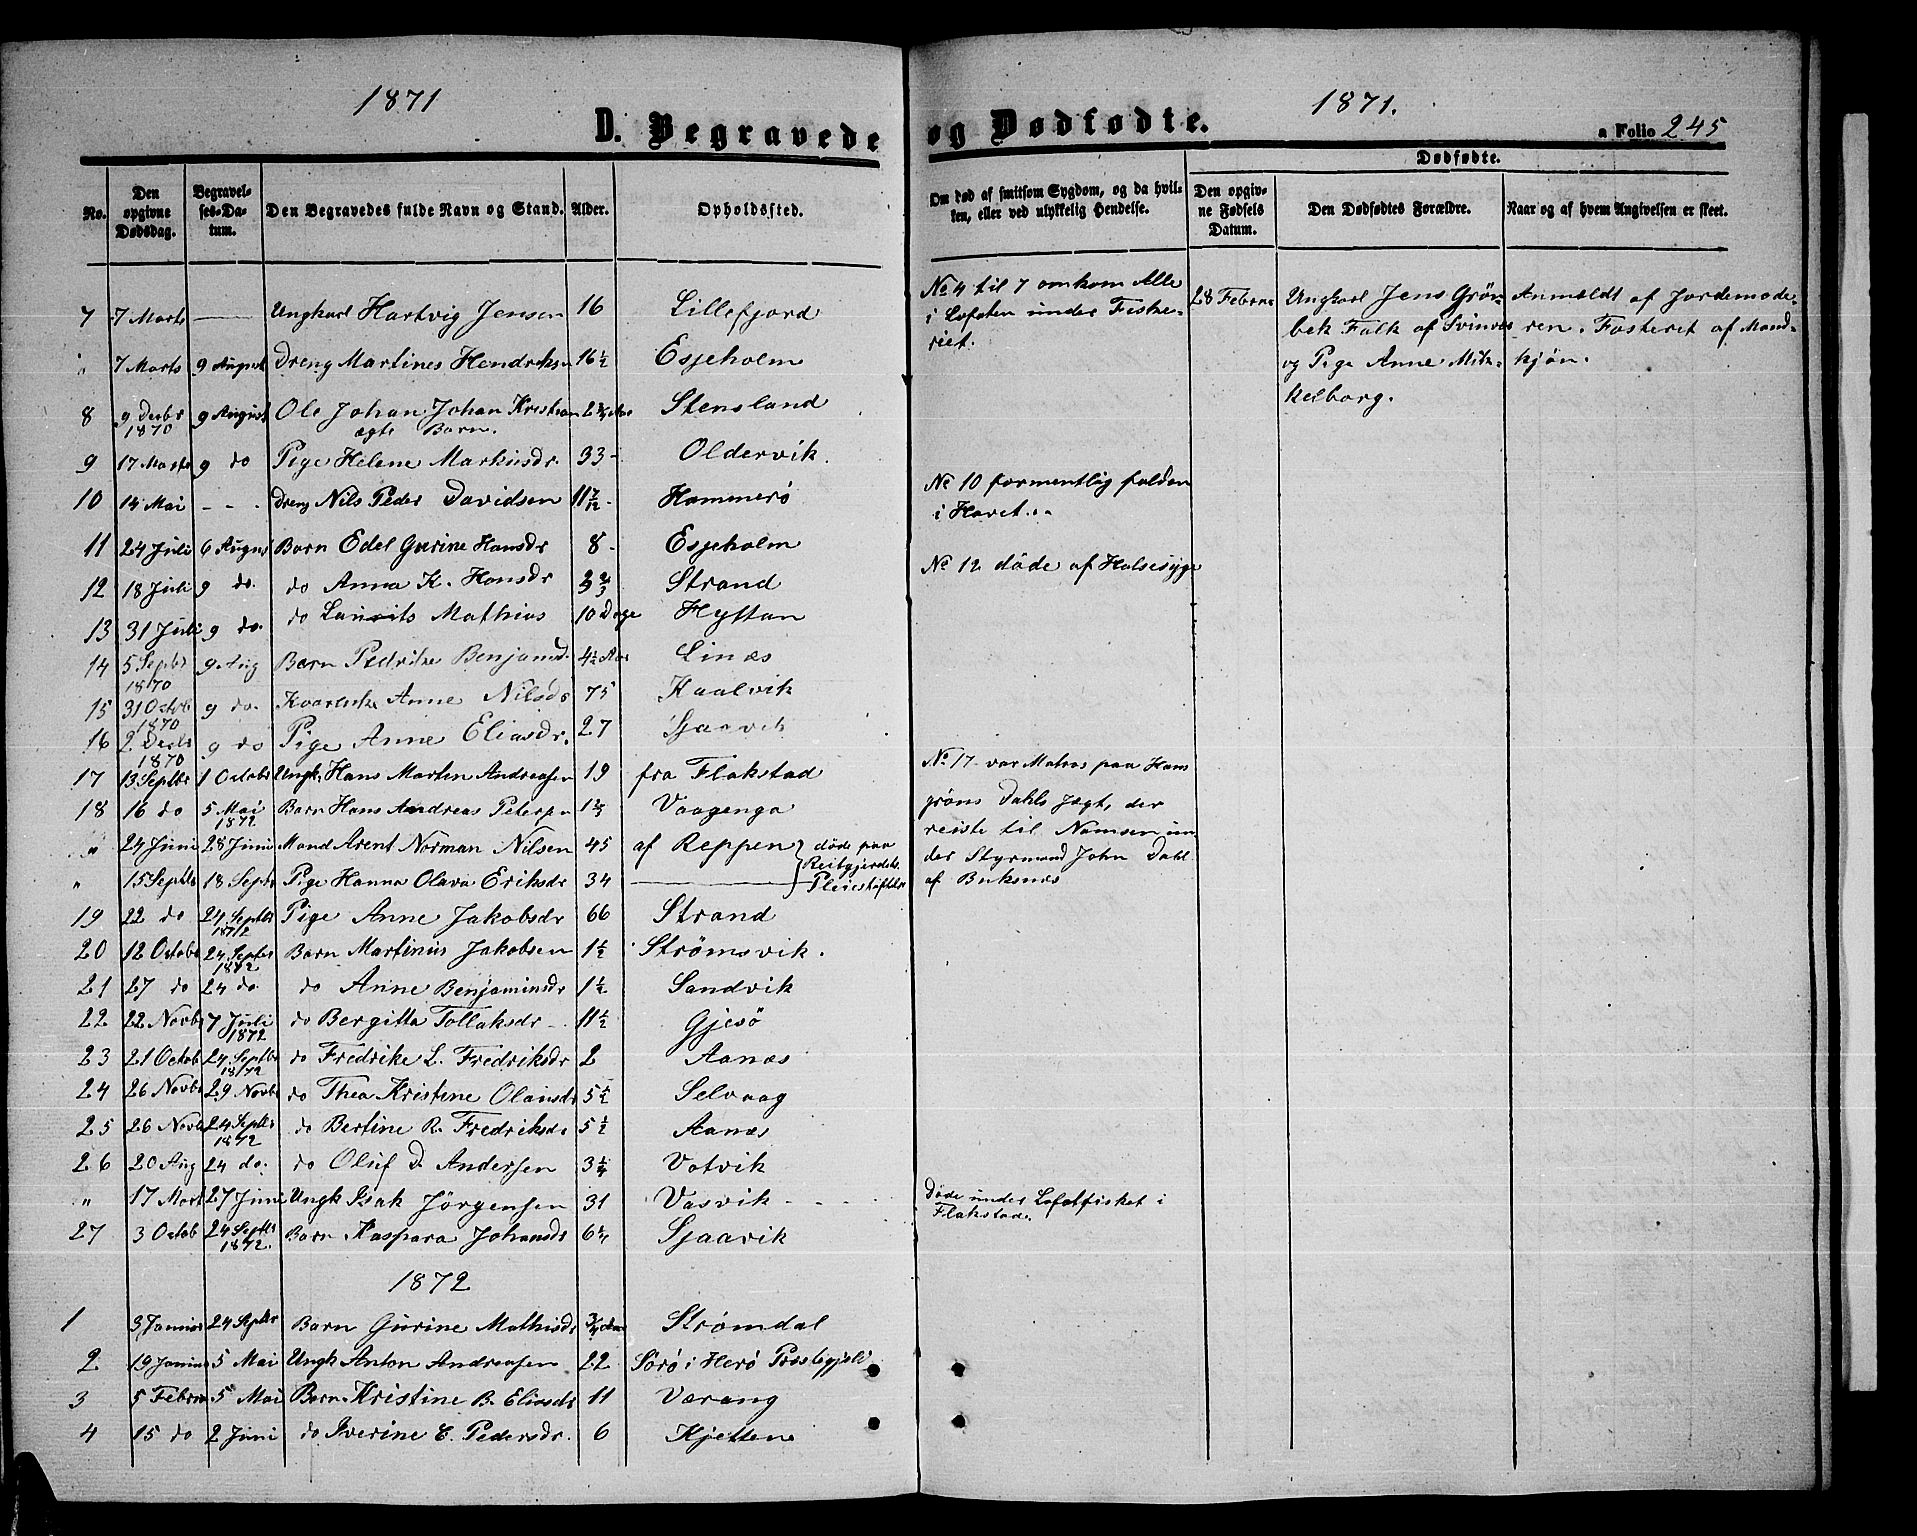 1871
D. Begravede
No.
Den opgivne Dødsdag.
Begravelses-Datum.
Den Begravedes fulde Navn og Stand.
Alder.
Opholdssted.
7 7 Marts — Ungkarl Hartvig Jensen 16 Lillefjord
7 Marts 9 August Dreng Martines Hendriksen 16½ Esjeholm
8 9 Decbr 1870 9 August Ole Johan Johan Kristian 2 Stensland
ægte Barn.
9 17 Marts 9 do Pige Helene Markusdr. 33 - Oldervik.
10 14 Mai - - - Dreng Nils Peder Davidsen 11 7/12 - Hammerö
11 24 Juli 6 August Barn Edel Gurine Hansdr 8 - Esjeholm
12 18 Juli 9 do. do Anna K. Hansdr 3 Strand
13 31 Juli 9 do. do Laurits Mathias 10 Dage Hystan
14 5 Septbr 1870 9 Aug Barn Pedrikke Benjamsd. 4½ Aar Linæs
15 31 Octob 1870 9 do. Anne Nilsdr 75 Kaalvik
16 2 Decbr 1870 9 do Pige Anne Eliasdr. 27 Sjaavik
17 13 Septbr 1 Octobr Ungk. Hans Morten Andreasen 19 fra Flakstad
18 16 do 5 Mai 1872 Barn Hans Andreas Petersen 1 Vaagenga
" 24 Juni 28 Juni Mand Arent Norman Nilsen 45 af Reppen } døde paa Reitgjerdets Pleiestiftelse
" 15 Septbr 18 Septr Pige Hanna Olava Eriksdr 34 —
19 22 do 24 Septbr 1872 Pige Anne Jakobsdr 66 Strand
20 12 Octobr 24 Septbr 1872 Barn Martinus Jakobsen 1½ Strömsvik.
21 27 do 24 do do Anne Benjaminsdr 1½ Sandvik
22 22 Novbr 7 Juli 1872 do Bergitta Tollaksdr - 11½ Gjesö
23 21 Octob 24 Septbr 1872 do Fredrike L. Fredriksdr 2 Aanæs
24 26 Novbr 29 Novbr do Thea Kristine Olausdr 5½ Selvaag
25 26 Novb 24 Septbr 1872 do Bertine R. Fredriksdr 5½ Aanæs
26 20 Aug 24 do. do Oluf D. Andersen 3¼ Votvik
" 17 Mart 27 Juni Ungk Isak Jörgensen 31 Vasvik - - -
27 3 Octob 24 Septbr 1872. Barn Kaspara Johansdr 6¼ Sjaavik
1872
1 3 Januar 24 Septbr Barn Gurine Mathisdr ¾ Aar Strömdal
2 19 Januar 5 Mai Ungk Anton Andreasen 22 Sörö i Herö Præstegjeld
3 5 Febru 5 Mai Barn Kristine B. Eliasdr 11 Værang
4 15 do 2 Juni do Iverine E. Pedersdr. 6 Kjettene
1871.
og Dødfødte.
a Folio 245
Om død af smitsom Sygdom, og da hvilken, eller ved ulykkelig Hendelse.
Dødfødte.
Den opgivne Fødsels Datum.
Den Dødfødtes Forældre.
Naar og af hvem Angivelsen er skeet.
No 4 til 7 omkom Alle
i Lofoten under Fiske-
riet.
28 Februar
Ungkarl Jens Grön-
bek Falk af Svinnes
og Pige Anne Mik-
kelborg.
Anmeldt af Jordemode-
ren. Fosteret af Mand-
kjön.
No 10 formentlig falden
i Havet..
No 12 döde af Halsesyge
No 17 var Matros paa Hans
gröns Dahls Jægt, der
reiste til Namsen un-
der Styrmand John Dahl
af Buksnæs
Döde under Lofotfisket i
Flakstad.